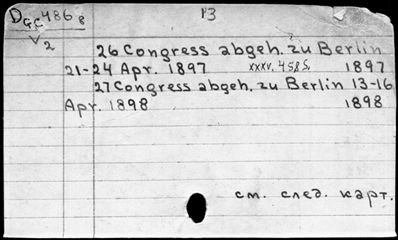 DGC 486 8 13
V2
26 Congress abgeh. zu Berlin
21-24 Apr. 1897 xxxv, 458 S. 1897
27 Congress abgeh. zu Berlin 13-16
Apr. 1898 1898
см. след. карт.